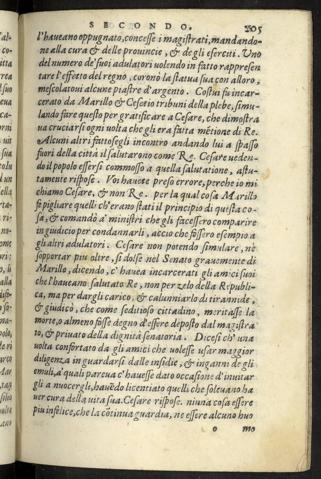 SECONDO. 205
l'haueano oppugnato, concesse i magistrati, mandando-
ne alla cura & delle prouincie, & de gli eserciti. Vno
del numero de' suoi adulatori volendo in fatto rappresen
tare l'effetto del regno, coronò la statua sua con alloro,
mescolatoui alcune piastre d'argento. Costui fu incar-
cerato da Marillo & Cesetio tribuni della plebe, simu-
lando fare questo per gratificare a Cesare, che dimostra
ua cruciarsi ogni volta che gli era fatta mẽtione di Re.
Alcuni altri fattosegli incontro andando lui a spasso
fuori della città il salutarono come Re. Cesare ueden-
do il popolo essersi commosso a quella salutatione, astu-
tamente rispose. Voi hauete preso errore, perche io mi
chiamo Cesare, & non Re. per la qual cosa Marillo
fe pigliare quelli ch'erano stati il principio di questa co-
sa, & comandò a' ministri che gli facessero comparire
in giudicio per condannarli, acciò che fossero esempio a
gli altri adulatori. Cesare non potendo simulare, ne
sopportar piu oltre, si dolse nel Senato grauemente di
Marillo, dicendo, c'hauea incarcerati gli amici suoi
che l'haueano salutato Re, non per zelo della Republi-
ca, ma per dargli carico, & calunniarlo di tirannide,
& giudicò, che come seditioso cittadino, meritasse la
morte, o almeno fosse degno d'essere deposto dal magistra
to, & priuato della dignità senatoria. Dicesi ch'vna
volta confortato da gli amici che volesse vsar maggior
diligenza in guardarsi dalle insidie, & inganni de gli
emuli, a' quali pareua c'hauesse dato occasione d'inuitar
gli a nuocergli, hauẽdo licentiato quelli che soleuano ha
uer cura della vita sua. Cesare rispose. niuna cosa essere
piu infelice, che la cõtinua guardia, ne essere alcuno huo
o mo